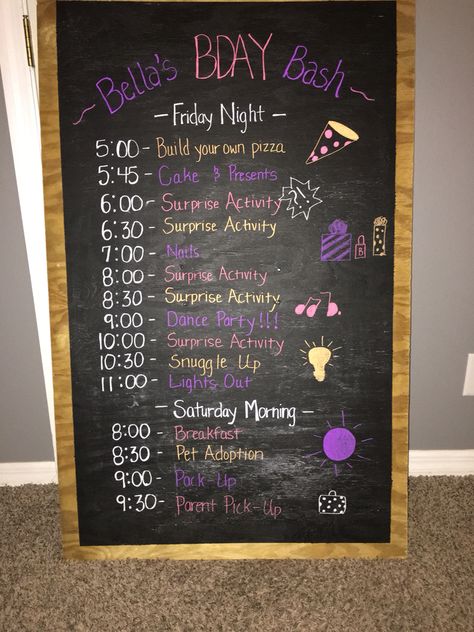 Bella's BDAY Bash
- Friday Night -
5:00 - Build your own pizza
5:45 - Cake & Presents
6:00 - Surprise Activity
6:30 - Surprise Activity
7:00 - Nails
8:00 - Surprise Activity
8:30 - Surprise Activity
9:00 - Dance Party!!!
10:00 - Surprise Activity
10:30 - Snuggle Up
11:00 - Lights Out
- Saturday Morning -
8:00 - Breakfast
8:30 - Pet Adoption
9:00 - Pack-Up
9:30 - Parent Pick-Up
B